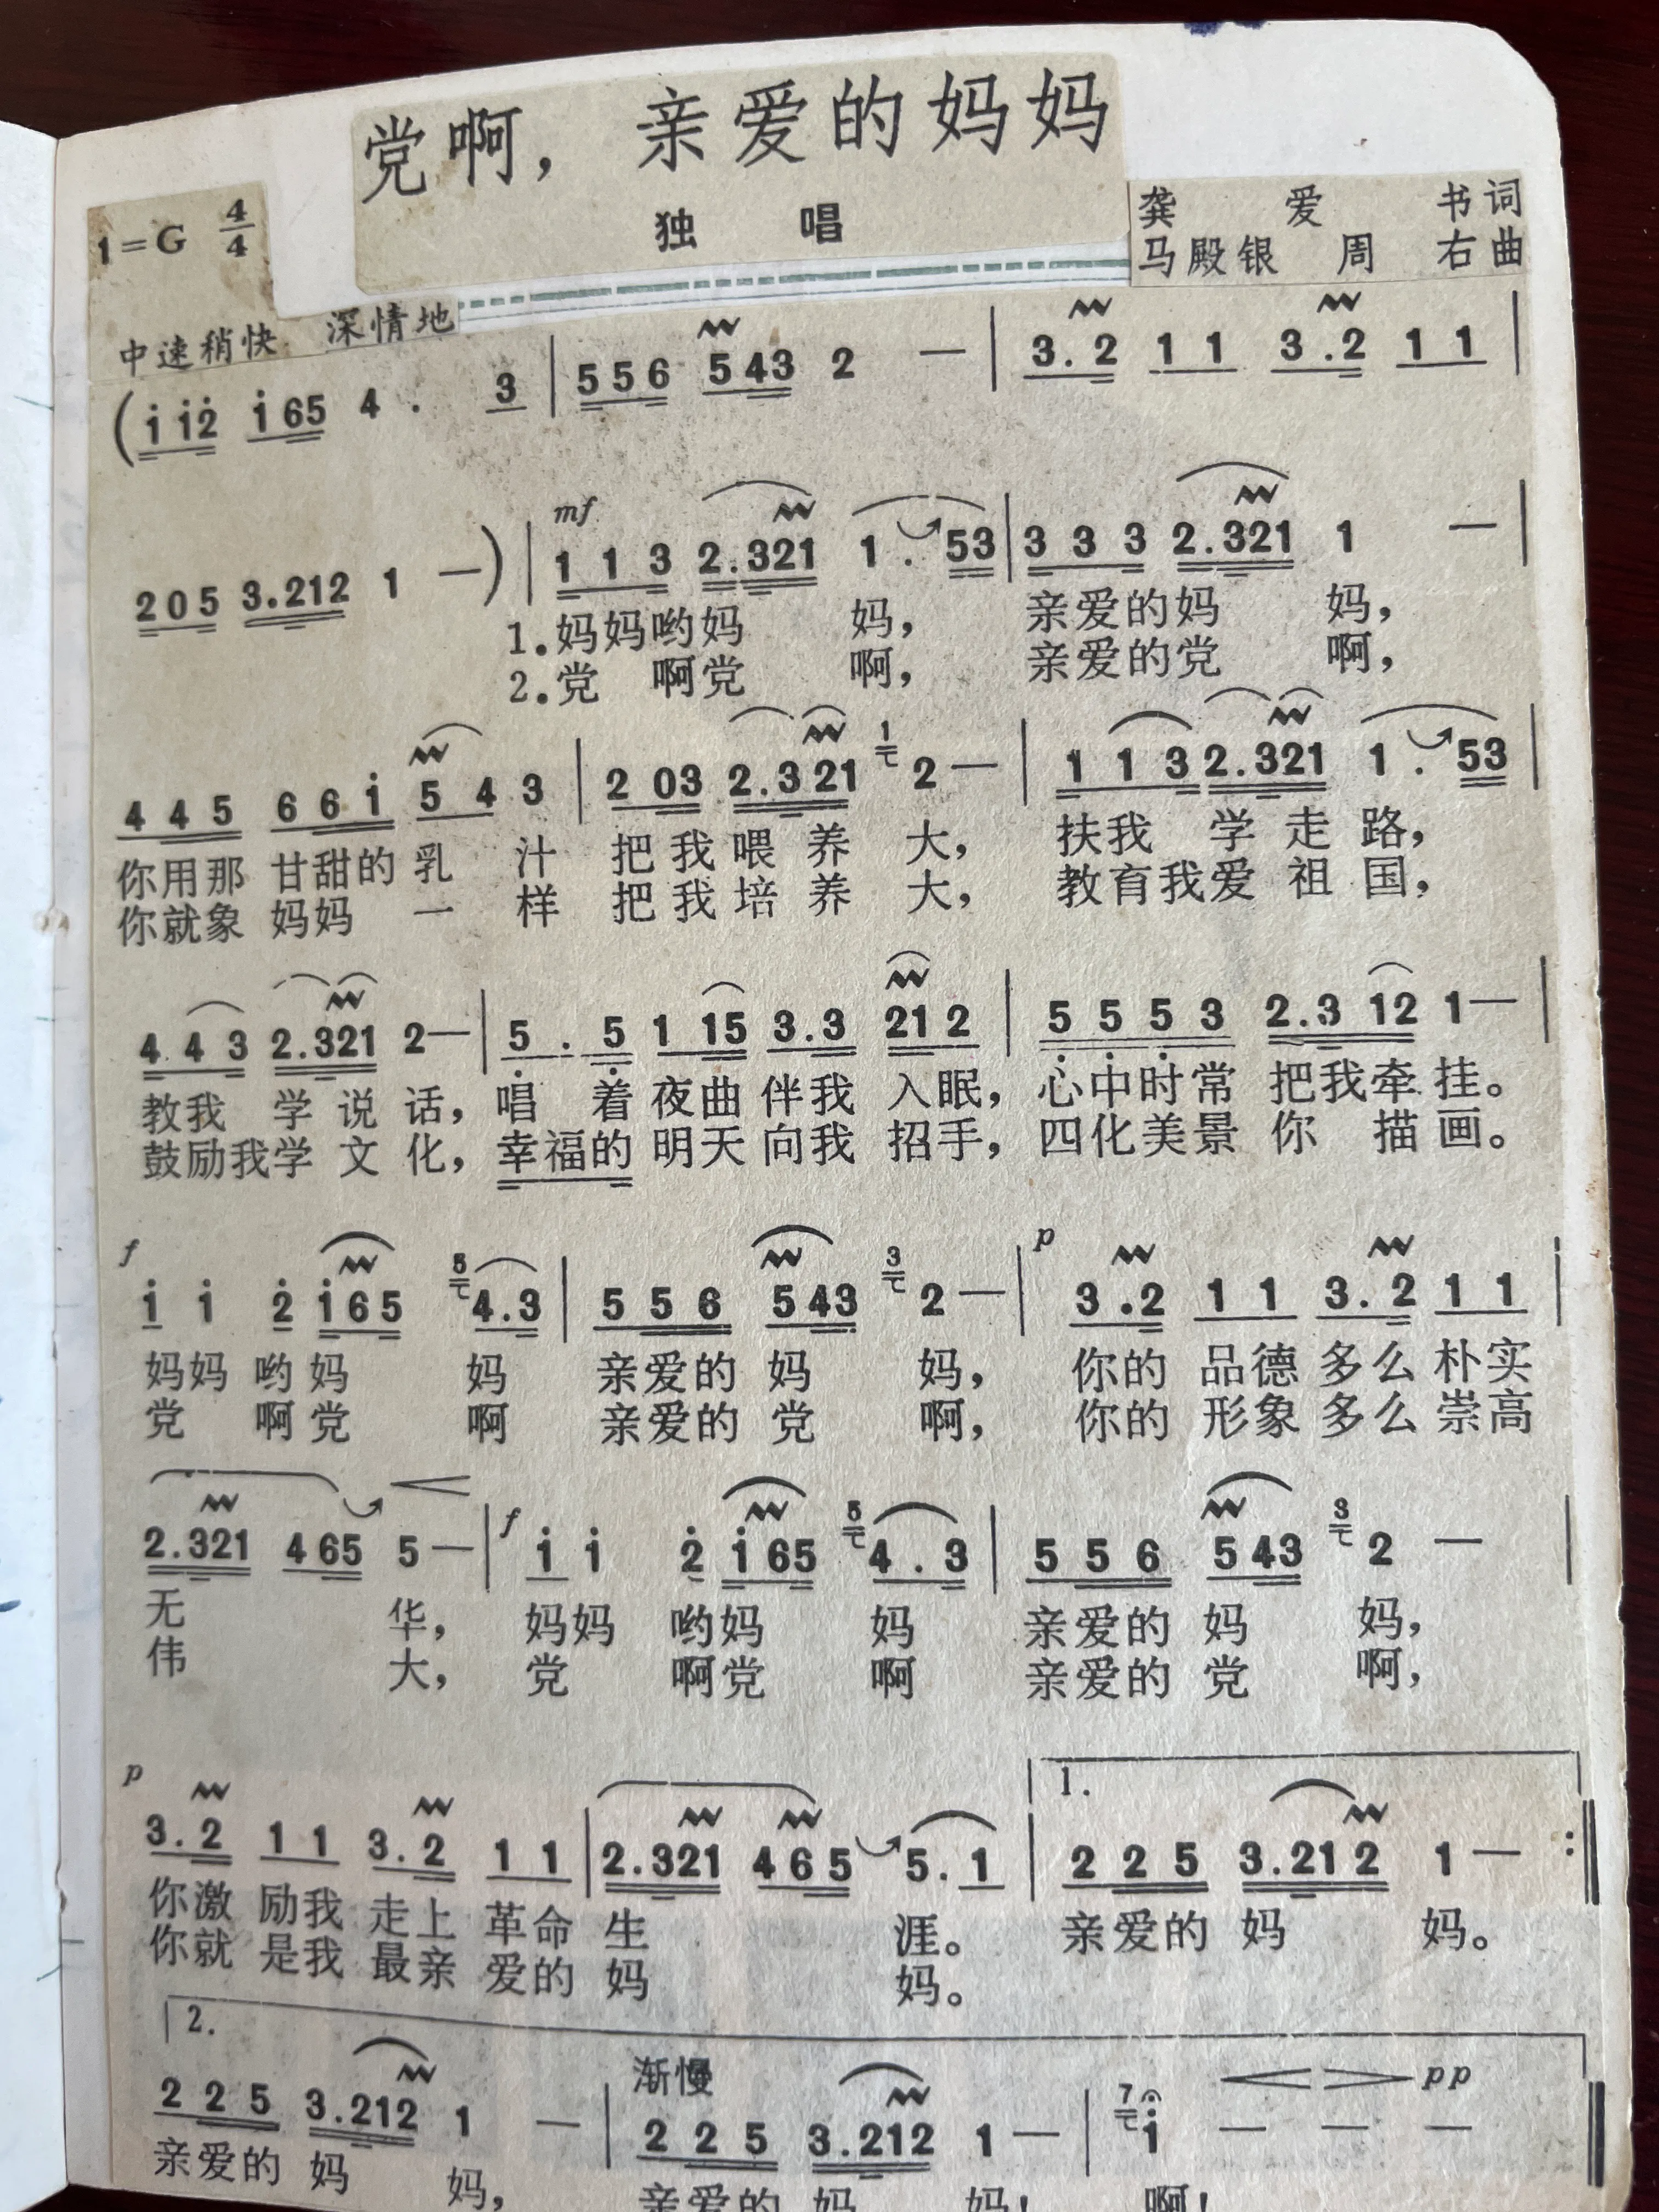 党啊，亲爱的妈妈
独 唱
1=G 4/4
龚 爱 书词
马殿银 周 右曲
中速稍快 深情地
(i̇ i̇2̇ i̇65 4. 3 | 556 543 2 — | 3.2 11 3.2 11 |
mf
205 3.212 1 —) | 113 2.321 1. 53 | 333 2.321 1 — |
1.妈妈哟妈 妈， 亲爱的妈 妈，
2.党 啊党 啊， 亲爱的党 啊，
445 66i̇ 54 3 | 2 03 2.321 1 2 — | 113 2.321 1. 53 |
你用那 甘甜的 乳 汁 把我喂 养 大， 扶我 学 走 路，
你就象 妈妈 一 样 把我培 养 大， 教育我爱 祖 国，
443 2.321 2 — | 5̣. 5̣ 1 15 3.3 21 2 | 5̣ 5̣ 5̣ 3 2.3 12 1 — |
教我 学 说 话， 唱 着 夜曲 伴我 入眠， 心中时常 把我牵 挂。
鼓励我学 文 化， 幸福的 明天 向我 招手， 四化美景 你 描 画。
f p
i̇ i̇ 2̇ i̇65 5 4.3 | 556 543 3 2 — | 3.2 11 3.2 11 |
妈妈 哟 妈 妈 亲爱的 妈 妈， 你的 品德 多么 朴实
党 啊 党 啊 亲爱的 党 啊， 你的 形象 多么 崇高
2.321 465 5 — | f i̇ i̇ 2̇ i̇65 5 4.3 | 556 543 3 2 — |
无 华， 妈妈 哟妈 妈 亲爱的 妈 妈，
伟 大， 党 啊党 啊 亲爱的 党 啊，
p 1.
3.2 11 3.2 11 | 2.321 465 5.1 | 225 3.212 1 — :‖
你激 励我 走上 革命 生 涯。 亲爱的 妈 妈。
你就 是我 最亲 爱的 妈 妈。
2. 渐慢 pp
225 3.212 1 — | 225 3.212 1 — | 7 i̇ — — — ‖
亲爱的 妈 妈， 亲爱的 妈 妈！ 啊！